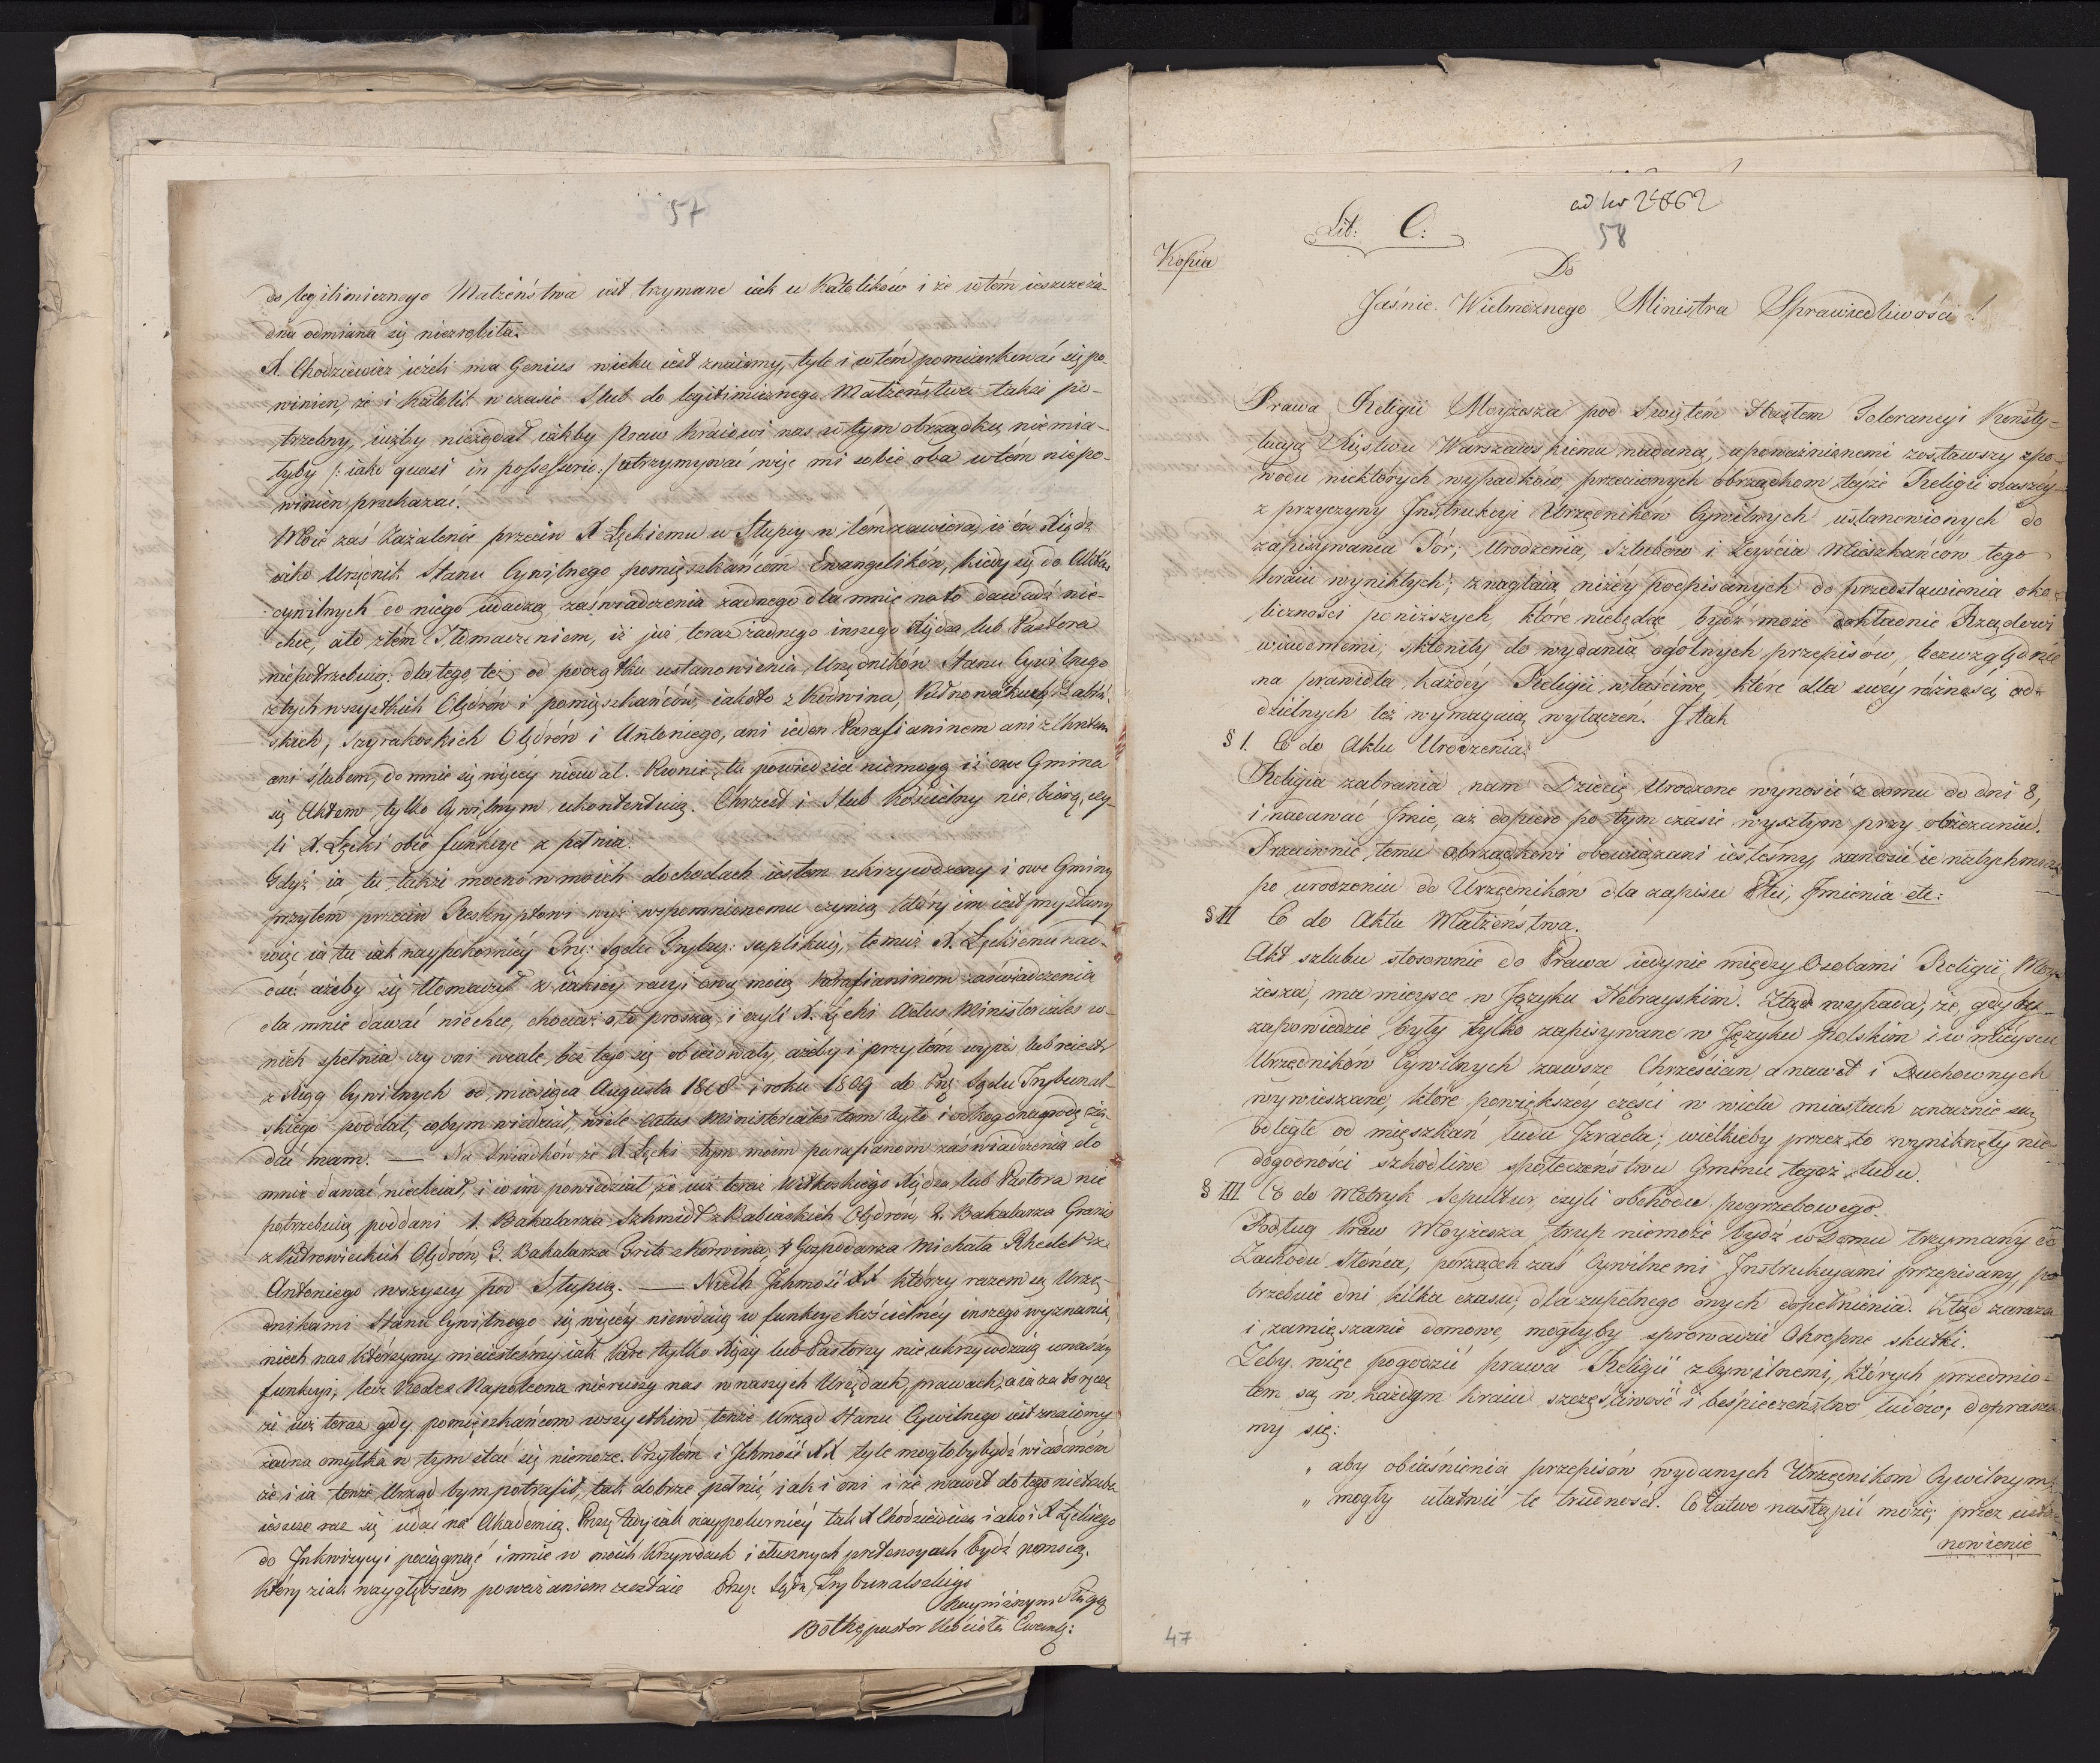 57
do legitimicznego Małżeństwa iest trzymane iak u Katolików i że wtém ieszcze ża-
dna odmiana się niezrobiła.
X. Chodziewicz ieżeli ma Genius wieku iest znaiomy, tyle i wtém pomiarkować się po-
winien, że i Katolik w czasie Slub do legitimicznego Małżeństwa także po-
trzebny, iużby nieżądał iakby praw kraiowi nas w tym obrządku niemia-
łyby /: iako quasi in possessorio :/ utrzymywać więc mi sobie oba wtém niepo-
winien przekazać.
Moie zaś Zażalenie przeciw X Łęckiemu w Słupcy w tém zawiera, iż ów Xiądz
iako Urzędnik Stanu Cywilnego pomięszkańcóm Ewangelików, kiedy się do Aktów
cywilnych do niego udadzą, zaświadczenia żadnego dla mnie na to dawadź nie-
chce, ato ztém Tłomaczeniem, iż już teraz żadnego innego Xiędza lub Pastora
niepotrzebuią, dla tego też od początku ustanowienia Urzędników Stanu Cywilnego
ztych wszystkich Olędrów i pomięszkańców, iakoto z Korwina,
skich, Szyrakoskich Olędrów i Antoniego, ani ieden Parafianinem ani z Chrztem
ani slubem, do mnie się więcéy nieudał. Rownie, tu powiedzieć niemogę iż owe Gmina
się Aktem tylko Cywilnym ukontentuią. Chrzest i Slub Kościelny nie biorą, czy-
li X. Łęcki obie funkcye z pełnia.
Gdyż ia tu także mocno w moich dochodach iestem ukrzywdzony i owe Gminy
przytém przeciw Reskryptowi wyż wspomnionemu czynią który im iest przysłany
więc ia tu iak naypokorniéy Prz: Sądu Trybuz: suplikuię, temuż X. Łęckiemu nad-
dać ażeby się tłomaczył z iakiéy racyi owę moią Parafianinom zaświadczenia
dla mnie dawać niechce, chociaż oto proszą i czyli X. Łęcki Actus Ministeriales w-
nich spełnia czy oni wcale bez tego się obeiowały, ażeby i przytém wypis lub reiestr
z Xiąg Cywilnych od miesiąca Augusta 1808 i roku 1809 do Prz: Sądu Trybunal-
skiego poddał, abym widział, wiele Actus Ministeriales tam było i odkogo nagrodę żą-
dać mam. — Na Swiadków że X Łęcki tym moim parafianom zaświadczenia do
mnie dawać niechciał, i iż im powiedział że iuż teraz Witkoskiego Xiędza lub Pastora nie
potrzebuią poddani 1. Bakalarza Szhmidt z Babiaskich Olędrów, 2. Bakalarza
z Piotrowickich Olędrów 3. Bakalarza Brito z Korwina, 4 Gospodarza Michała
Antoniego wszyscy pod Słupią. — Niech Jchmość XX którzy razem są Urzę-
dnikami Stanu Cywilnego się więcéy niewdaią w funkcye kościelnéy inszego wyznania,
niech nas którzymy nieiesteśmy iak Pare tylko Xięży lub Pastorzy nie ukrzywdzaią wnaszéy
funkcyi, lecz Kodex Napoleona nieruszy nas w naszych Urzędach, prawach, a ia za to ręczę
że iuż teraz gdy pomięszkańcom wszystkim tenże Urząd Stanu Cywilnego iest znaiomy
żadna omyłka w tym stać się niemoże. Przytém i Jchmość XX tyle mogło by bydź wiadomém
że i ia tenże Urząd bym potrafił, tak dobrze pełnić, iak i oni i że nawet do tego nietrzeba
ieszcze raz się udać na Akademią. Proszę tedy iak naypokorniéy tak X Chodziewicza iako i X Łęckiego
do Jnkwizycyi pociągnąć i mnie w moich krzywdach i słusznych pretensyach bydź pomocą.
który ziak naygłębszem poważaniem zostaie Prz: Sądu Trybunalskiego
Nayniższym Sługą
Bothe, pastor Kościoła Ewang:
ad No 2862
58
Lit: C:
Kopia
Do
Jaśnie Wielmożnego Ministra Sprawiedliwości!
Prawa Religii Moyżesza pod Swiętém Hasłem Tolerancyi Konsty-
tucyą Xięstwu Warszawskiemu nadaną, upoważnionemi zostawszy zpo-
wodu niektórych wypadków przeciwnych obrządkom téyże Religii naszéy
z przyczyny Jnstrukcyi Urzędników Cywilnych ustanowionych do
zapisywania Pór; Urodzenia, Szlubów i Zeyścia Mieszkańców tego
kraiu wynikłych; znaglaią niżéy podpisanych do przedstawienia oko-
liczności poniższych, które niebędąc bydź może dokładnie Rządowi
wiademémi; skłoniły do wydania ogólnych przepisów, bezwzględnie
na prawidła każdéy Religii właściwe, które dla swéy różności od-
dzielnych też wymagaią wyłączeń. J tak
§ 1. Co do Aktu Urodzenia.
Religia zabrania nam Dziecię Urodzone wynosić z domu do dni 8,
i nadawać Jmie, aż dopiero po tym czasie wyszłym przy obrzezaniu.
Przeciwnie temu obrządkowi obowiązani iesteśmy zanosić ie natychmiast
po urodzeniu do Urzędników dla zapisu Płci, Jmienia etc:
§ II Co do Aktu Małżeństwa.
Akt szlubu stosownie do Prawa iedynie między Osobami Religii Moy-
żesza, ma mieysce w Języku Hebrayskim. Ztąd wypada, że gdyby
zapowiedzie były tylko zapisywane w Języku Polskim i w mieyscu
Urzędników Cywilnych zawsze Chrześcian a nawet i Duchownych
wywieszane, które powiększéy części w wielu miastach znacznie są
odległe od mięszkań ludu Jzraela; wielkieby przez to wyniknęły nie-
dogodności szkodliwe społeczeństwu Gminie tegoż ludu.
§ III Co do Metryk Sepultur, czyli obchodu pogrzebowego.
Podług Praw Moyżesza trup niemoże bydź w Domu trzymany do
Zachodu Słońca, porządek zaś Cywilnemi Jnstrukcyami przepisany, po-
trzebuie dni kilka czasu; dla zupełnego onych dopełnienia. Ztąd zaraza
i zamięszanie domowe, mogłyby sprowadzić okropne skutki.
Zeby więc pogodzić prawa Religii z Cywilnemi, których przedmio-
tem są w każdym kraiu szczęśliwość i beśpieczeństwo ludów; doprasza-
my się:
" aby obiaśnienia przepisów wydanych Urzędnikom Cywilnym,
" mogły ułatwić te trudność. Co łatwo nastąpić może; przez usta-
nowienie
47